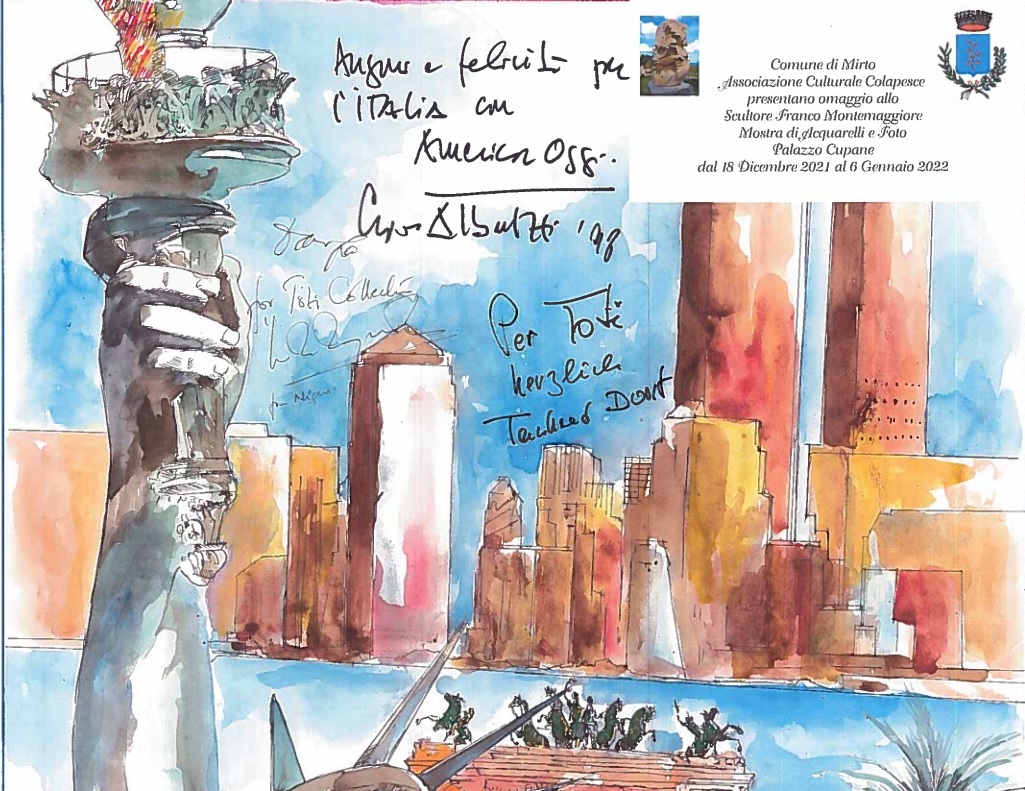 Auguri e felicità per
l'ITALIA con
America Oggi..
'98
for Titi Collection
Per Totò
herzlich
Tankred Dorst
Comune di Mirto
Associazione Culturale Colapesce
presentano omaggio allo
Scultore Franco Montemaggiore
Mostra di Acquarelli e Foto
Palazzo Cupane
dal 18 Dicembre 2021 al 6 Gennaio 2022